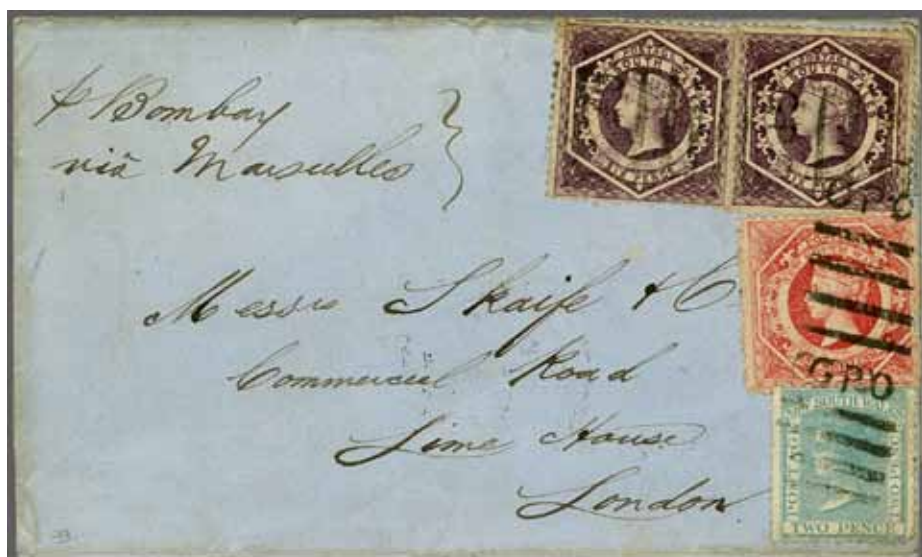 p Bombay
via Marseilles
Messrs Skaife & Co
Commercial Road
Lime House
London
POSTAGE
SOUTH WALES
SIX PENCE
POSTAGE
SOUTH WALES
SIX PENCE
GPO
GPO
NEW SOUTH WALES
POSTAGE
TWO PENCE